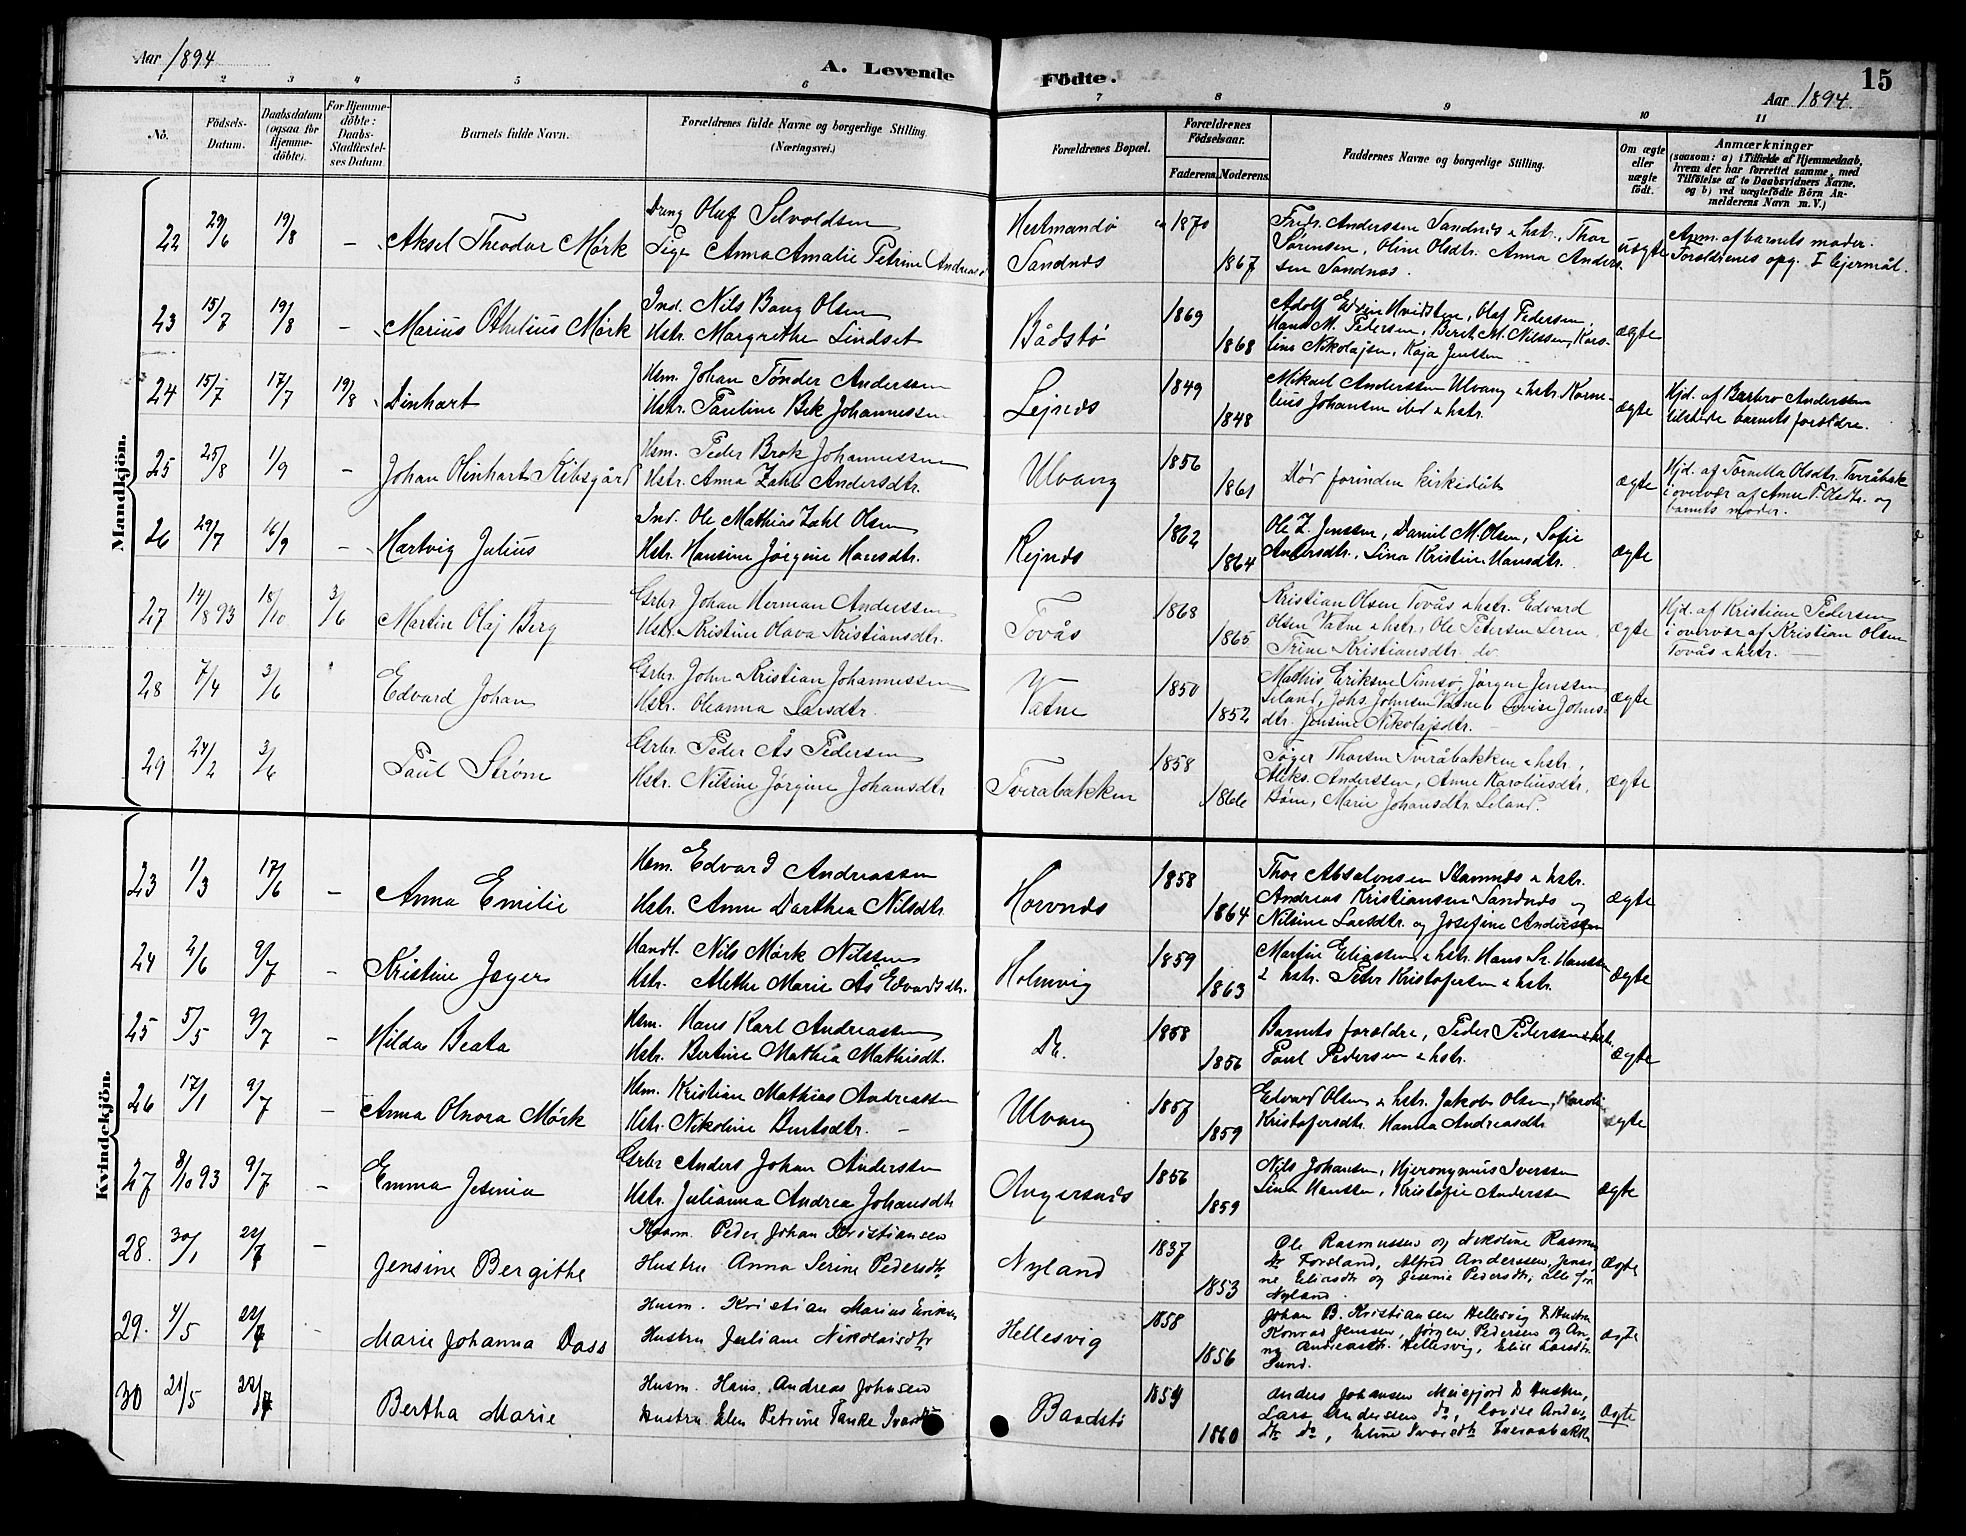 Aar 1894
A. Levende Födte.
Aar 1894.
15
1 2 3 4 5 6 7 8 9 10 11
No.
Födsels-Datum.
Daabsdatum (ogsaa for Hjemmedöbte).
For Hjemmedöbte: Daabs-Stadfæstelses Datum.
Barnets fulde Navn.
Forældrenes fulde Navne og borgerlige Stilling. (Næringsvei.)
Forældrenes Bopæl.
Forældrenes Födselsaar.
Faderens. Moderens.
Faddernes Navne og borgerlige Stilling.
Om ægte eller uægte födt.
Anmærkninger
(saasom: a) i Tilfælde af Hjemmedaab, hvem der har forrettet samme, med Tilföielse af to Daabsvidners Navne, og b) ved uægtefödte Börn Anmelderens Navn m. V.)
Mandkjön.
22 29/6 19/8 – Aksel Theodor Mörk
Dreng Oluf Selvoldsen
Pige Anna Amalie Petrine Andreasd
Hestmandö
Sandnæs
1870
1867
Fredr. Anderssen Sandnæs & hstr., Thor
Sörensen, Oline Olsdtr. Anna Anders
sen Sandnæs.
uægte
Anm. af barnets moder.
Forældrenes opg. I lejermål.
23 15/7 19/8 – Marius Othelius Mörk
Ind. Nils Bang Olsen
Hstr. Margrethe Lindset
Bådstö
1869
1868
Adolf Edvin Hvidsten, Olaf Pedersen,
Hans M. Pedersen, Berit M. Nilssen, Karo-
line Nikolajsen, Kaja Jenssen
ægte
24 15/7 17/7 19/8 Dinhart
Hsm. Johan Tönder Anderssen
Hstr. Pauline Bek Johannessen
Lejnæs
1849
1848
Mikael Anderssen Ulvang & hstr. Korne-
lius Johansen ibd & hstr.
ægte
Hjd. af Barbro Anderssen
tilstede barnets forældre.
25 25/8 1/9 – Johan Olinhart Kibsgård
Hsm. Peder Brok Johannessen
Hstr. Anna Zahl Andersdtr.
Ulvang
1856
1861
Död forinden kirkedåb
ægte
Hjd. af Tornilla Olsdtr. Tveråbak
i overvær af Anne P. Olsdtr. og
barnets moder.
26 29/7 16/9 – Hartvig Julius
Ind. Ole Mathias Zahl Olsen
Hstr. Hansine Jörgine Hansdtr.
Rejnæs
1862
1864
Ole Z. Jenssen, Daniel M. Olsen, Sofie
Andersdtr., Lina Kristine Hansdtr.
ægte
27 14/8 93 18/10 3/6 Martin Olaj Berg
Grbr. Johan Herman Anderssen
Hstr. Kristine Olava Kristiansdtr.
Tovås
1868
1865
Kristian Olsen Tovås & hstr. Edvard
Olsen Vatne & hstr., Ole Petersen Leren,
Trine Kristiansdtr. do
ægte
Hjd. af Kristian Pedersen
i overvær af Kristian Olsen
Tovås & hstr. –
28 7/4 3/6 Edvard Johan
Grbr. John Kristian Johannessen
Hstr. Oleanna Larsdtr.
Vatne
1850
1852
Mathis Eriksen Simsö, Jörgen Jenssen
Leland, Johs Johnsen Vatne, Lovise Johns-
dtr. Jensine Nikolajsdtr.
ægte
29 24/2 3/6 Paul Ström
Grbr. Peder Ås Pedersen
Hstr. Nilsine Jörgine Johansdtr
Tverabakken
1858
1866
Töger Thorsen Tveråbakken & hstr.,
Aleks. Anderssen, Anne Karoliusdtr.
Böm, Marie Johansdtr. Leland.
ægte
Kvindekjön.
23 1/3 17/6 – Anna Emilie
Hsm. Edvard Andreassen
Hstr. Anne Dorthea Nilsdtr
Horvnæs
1858
1864
Thor Absalonsen Stamnæs & hstr.
Andreas Kristiansen Sandnæs og
Nilsine Larsdtr. og Josefine Anderssen
ægte
24 2/6 9/7 – Kristine Jæger
Handl. Nils Mörk Nilssen
Hstr. Alethe Marie Ås Edvardsdtr.
Holmvig
1859
1863
Martin Eliassen & hstr. Hans Sr. Hanssen
& hstr. Peter Kristofersen & hstr.
ægte
25 5/5 9/7 – Hilda Beata
Hsm. Hans Karl Andreassen
Hstr. Bertine Mathea Mathisdtr.
Do.
1858
1856
Barnets forældre, Peder Pedersen & hstr.
Paul Pedersen & hstr.
ægte
26 17/1 9/7 – Anna Olnora Mörk
Hsm. Kristian Mathias Andreassen
Hstr. Nikoline Berntsdtr. –
Ulvang
1857
1859
Edvard Olsen & hstr. Jakob Olsen, Karoline
Kristofersdtr. Hanna Andreasdtr
ægte
27 8/10 93 9/7 – Emma Jesinia
Grbr Anders Johan Anderssen
Hstr. Julianna Andrea Johansdtr
Angersnæs
1856
1859
Nils Johansen, Hjeronymus Iverssen
Lina Hanssen, Kristofie Anderssen
ægte
28. 30/1 22/7 – Jensine Bergithe
Husm. Peder Johan Kristiansen
Hustru Anna Serine Pedersdtr
Nyland
1837
1853
Ole Rasmussen og Nikoline Rasmus
dtr Forsland, Alfred Anderssen, Jensi-
ne Eliasdtr og Jesenie Pedersdtr, alle fra
Nyland.
ægte
29. 4/5 22/7 – Marie Johanna Dass
Husm. Kristian Marius Eriksen
Hustru Juliane Nikolaisdtr
Hellesvig
1858
1856
Johan B. Kristiansen Hellesvig & Hustru
Konrad Jenssen, Jörgen Pedersen og An-
na Andreasdtr. Hellesvig, Elise Larsdtr.
Sund.
ægte
30 21/5 22/7 Bertha Marie
Husm. Hans Andreas Johnsen
Hustru Elen Petrine Tanke Ivarsdtr
Baadstö
1854
1860
Anders Johansen Meiefjord & Hustru,
Lars Anderssen do, Lovise Anders-
dtr do, Eline Ivarsdtr Tveraabakken
ægte